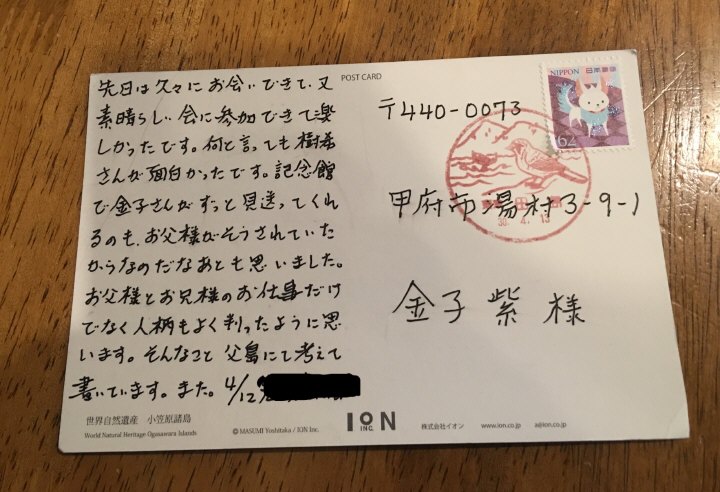 先日は久々にお会いできて、又
素晴らしい会に参加できて楽
しかったです。何と言っても樹希
さんが面白かったです。記念館
で金子さんがずっと見送ってくれ
るのも、お父様がそうされていた
からなのだなあとも思いました。
お父様とお兄様のお仕事だけ
でなく人柄もよく判ったように思
います。そんなこと父島にて考えて
書いています。また。4/12
世界自然遺産 小笠原諸島
World Natural Heritage Ogasawara Islands
© MASUMI Yoshitaka / ION Inc.
POST CARD
NIPPON 日本郵便
62
〒440-0073
甲府市湯村3-9-1
金子 紫 様
ION
INC.
株式会社イオン
www.ion.co.jp
a@ion.co.jp